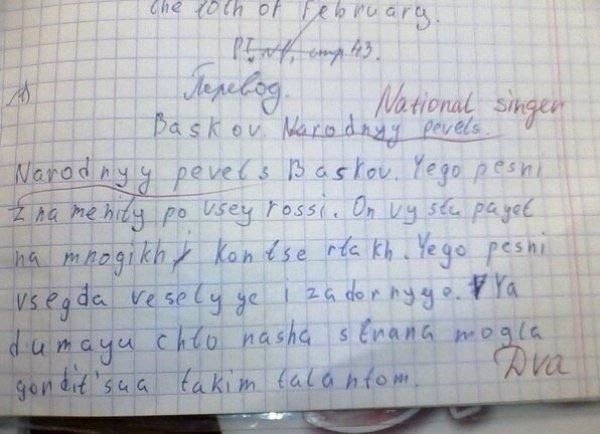 the 10th of February.
P I, №1, стр 43.
Перевод.
National singer
Baskov. Narodnyy pevets.
Narodnyy pevets Baskov. Yego pesni
znamenity po vsey rossi. On vystupayet
na mnogikh kontsertakh. Yego pesni
vsegda veselyye i zadornyye. Ya
dumayu chto nasha strana mogla
gordit'sya takim talantom.
Dva